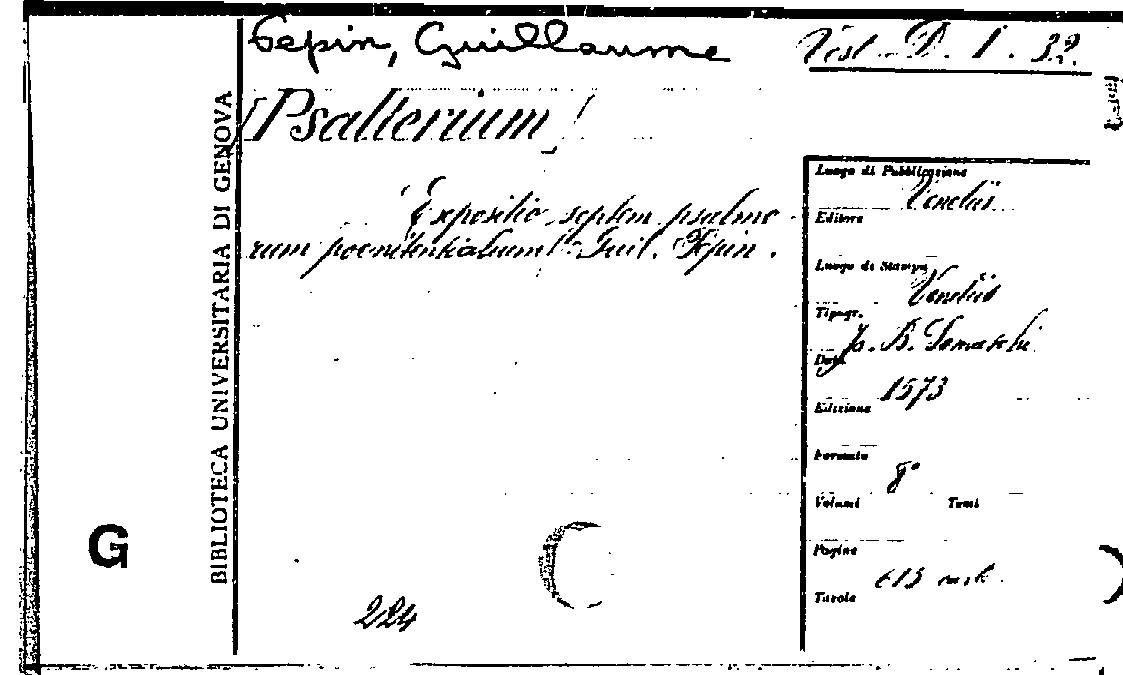 Pepin, Guillaume
Vist. D. 1. 32.
[Psalterium]
Expositio septem psalmo
rum poenitentialium Guil. Pepin.
224
BIBLIOTECA UNIVERSITARIA DI GENOVA
G
Luogo di Pubblicazione
Venetiis
Editore
Luogo di Stampa
Venetiis
Tipogr.
Jo. B. Somaschi
Data
1573
Edizione
Formato
8°
Volumi Tomi
Pagine
Tavole